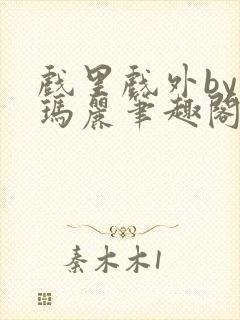 戲里戲外by
瑪麗筆趣閣
秦木木1